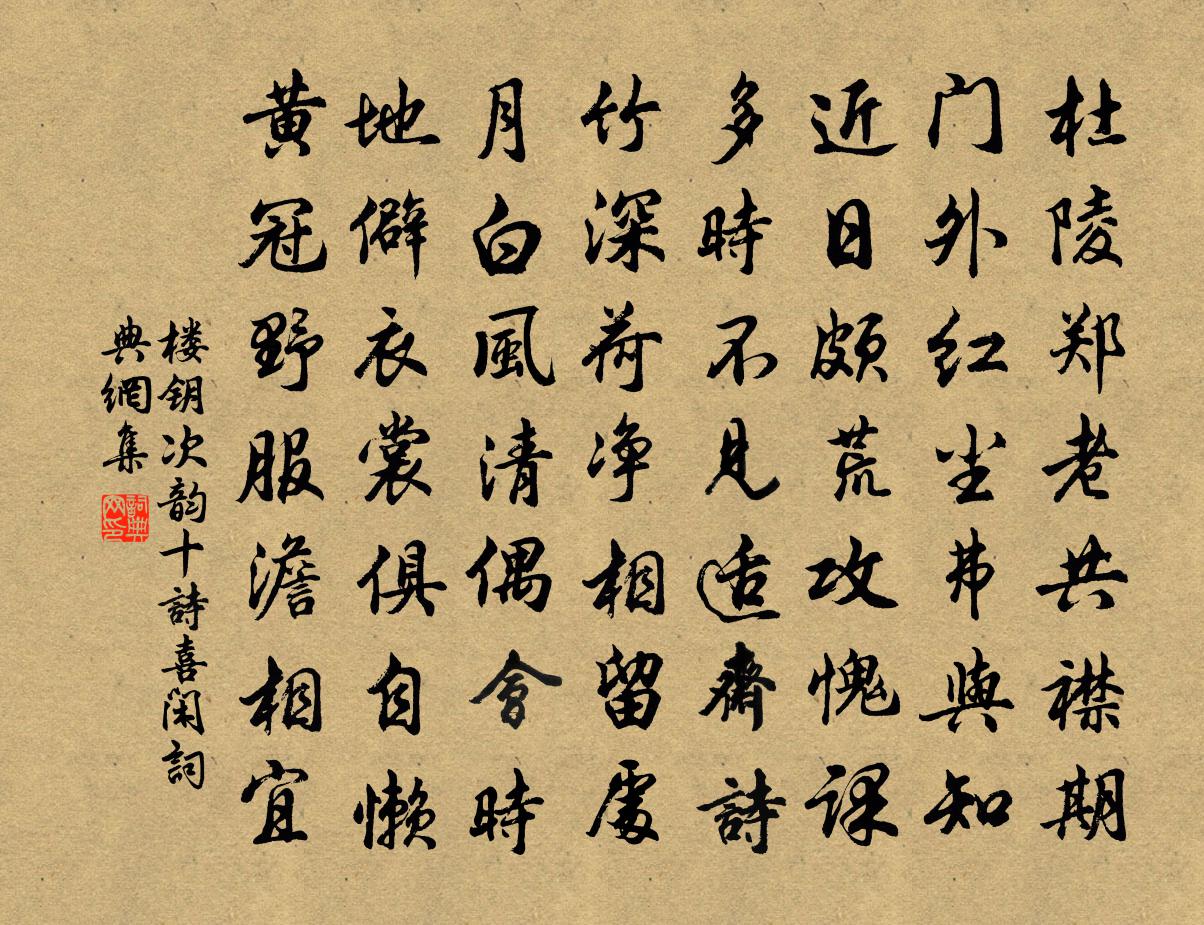 杜陵郑老共襟期
门外红尘弗與知
近日颇荒攻愧课
多時不見适齋詩
竹深荷净相留處
月白風清偶會時
地僻衣裳俱自懒
黄冠野服澹相宜
楼钥次韵十詩喜闲詞
典網集
詞典网印